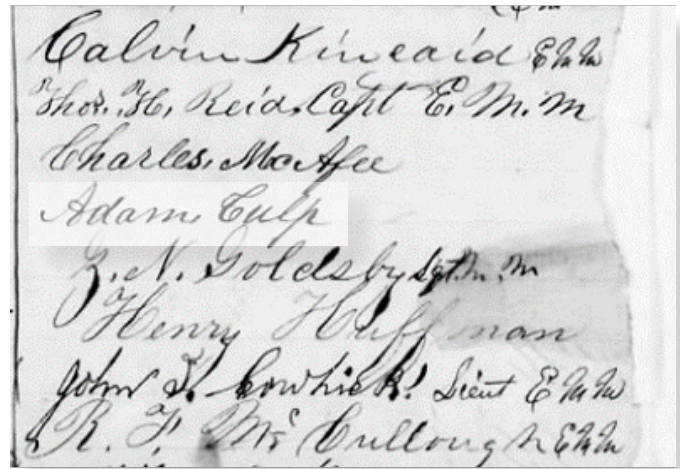 Calvin Kincaid E M M
Thos. H. Reid. Capt E. M. M
Charles McAfee
Adam Culp
Z. N. Goldsby Sgt. M. M
Henry Huffman
John S. Cowhick Lieut E M M
R. F. Mc Cullough E M M